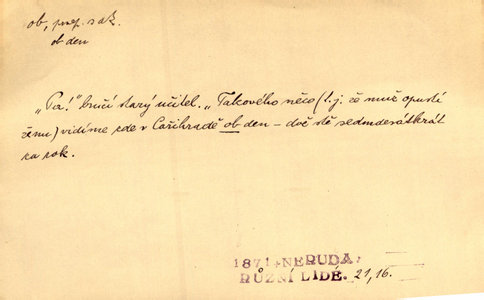 ob, prep. s ak.
ob den
„Pa!" bručí starý učitel. „Takového něco (t. j. že muž opustí
ženu) vidíme zde v Cařihradě ob den – dvě stě sedmdesátkrát
za rok.
1871 NERUDA,
RŮZNÍ LIDÉ. 21,16.